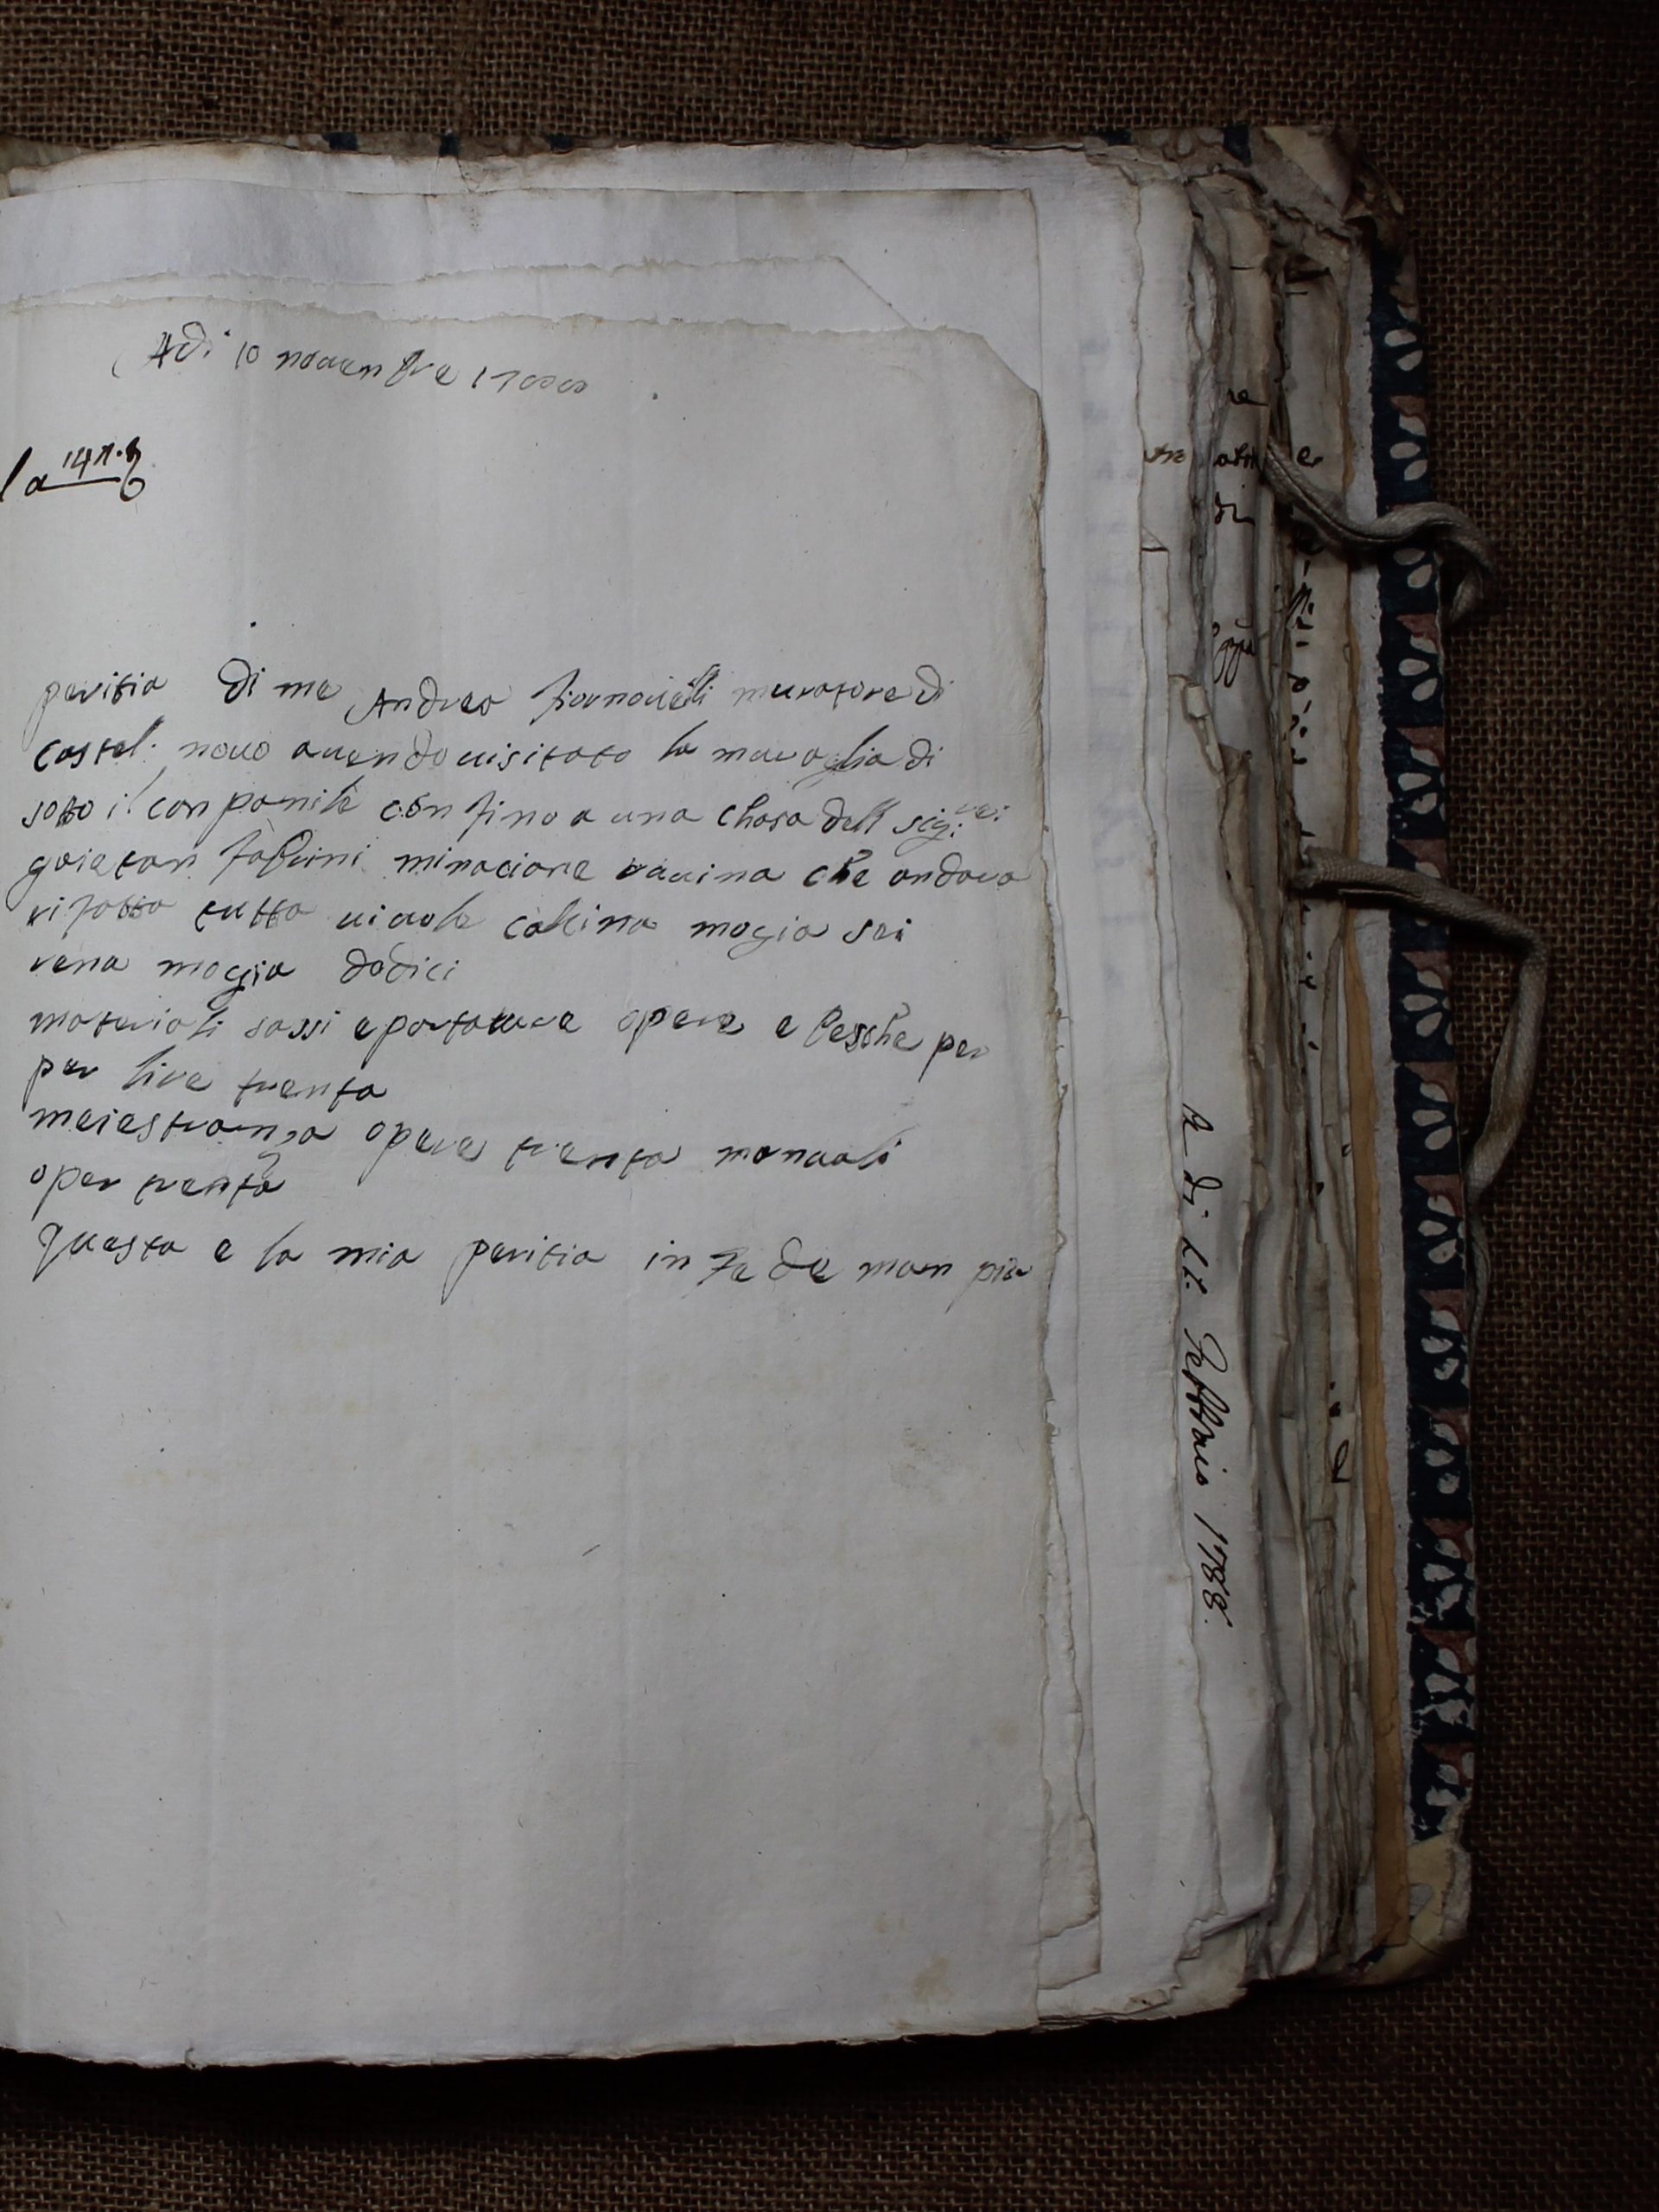 Adi 10 nouenbre 1788
la
peritia di me Andrea muratore di
castel: nouo auendo uisitato la muraglia di
sotto il canpanile confino a una chasa dell sig:ri
gaietan fabrini minacione rauina che andaua
rifatta tutta ui uole callina mogia sei
rena mogia dodici
materiali sassi e portature opere e besthe per
per lire trenta
meiestranza opere trenta manuali
oper trenta
questa e la mia peritia in fede man pia
A di Febbraio 1788.